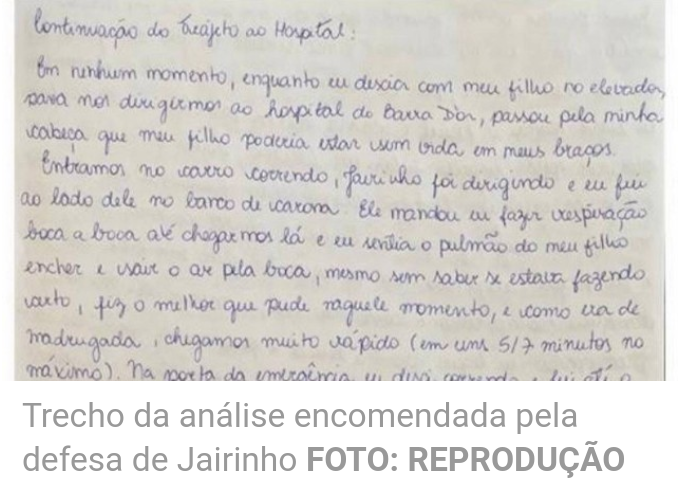 Continuação do Trajeto ao Hospital:
Em nenhum momento, enquanto eu descia com meu filho no elevador,
para nos dirigirmos ao hospital do Barra D'or, passou pela minha
cabeça que meu filho poderia estar sem vida em meus braços.
Entramos no carro correndo, Jairinho foi dirigindo e eu fui
ao lado dele no banco de carona. Ele mandou eu fazer respiração
boca a boca até chegarmos lá e eu sentia o pulmão do meu filho
encher e sair o ar pela boca, mesmo sem saber se estava fazendo
certo, fiz o melhor que pude naquele momento, e como era de
madrugada, chegamos muito rápido (em uns 5/7 minutos no
máximo). Na porta da emergência eu desci correndo e fui até o
Trecho da análise encomendada pela
defesa de Jairinho FOTO: REPRODUÇÃO